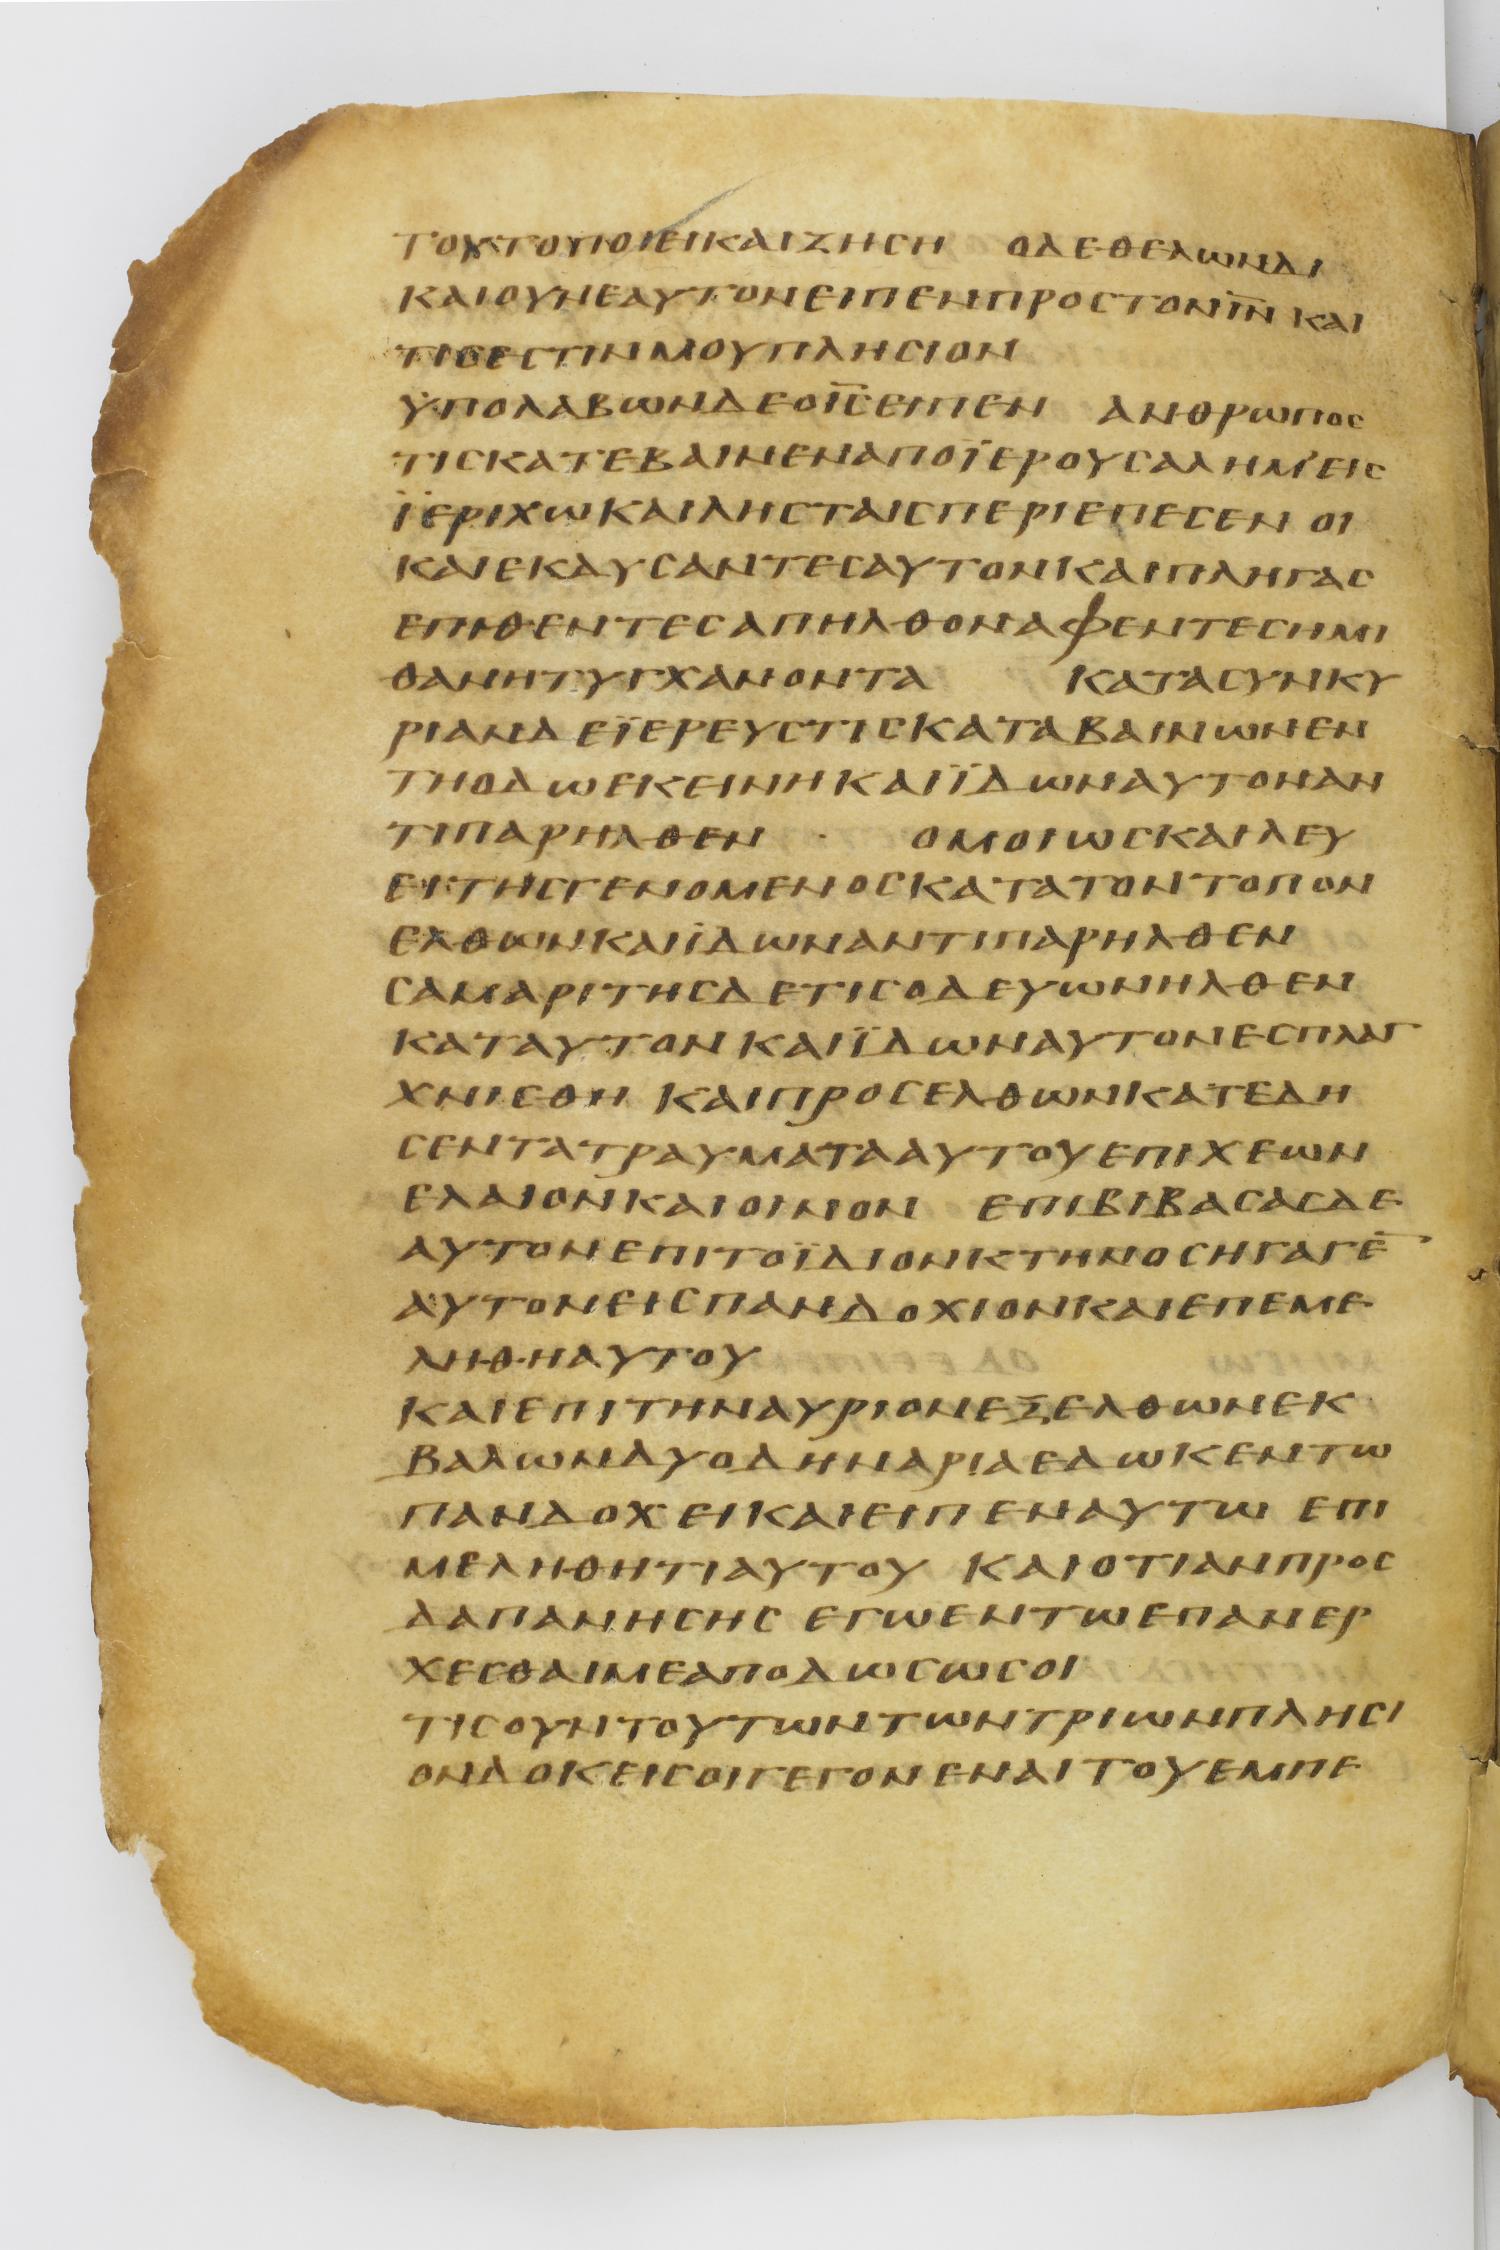 ΤΟΥΤΟΠΟΙΕΙΚΑΙΖΗCΗ ΟΔΕΘΕΛΩΝΔΙ
ΚΑΙΟΥΝΕΑΥΤΟΝΕΙΠΕΝΠΡΟCΤΟΝΙ̅Ν̅ ΚΑΙ
ΤΙCΕCΤΙΝΜΟΥΠΛΗCΙΟΝ
ΥΠΟΛΑΒΩΝΔΕΟΙ̅C̅ΕΙΠΕΝ ΑΝΘΡΩΠΟC
ΤΙCΚΑΤΕΒΑΙΝΕΝΑΠΟΪΕΡΟΥCΑΛΗΜ'ΕΙC
ΪΕΡΙΧΩΚΑΙΛΗCΤΑΙCΠΕΡΙΕΠΕCΕΝ ΟΙ
ΚΑΙΕΚΑΥCΑΝΤΕCΑΥΤΟΝΚΑΙΠΛΗΓΑC
ΕΠΙΘΕΝΤΕCΑΠΗΛΘΟΝΑΦΕΝΤΕCΗΜΙ
ΘΑΝΗΤΥΓΧΑΝΟΝΤΑ ΚΑΤΑCΥΝΚΥ
ΡΙΑΝΔΕΪΕΡΕΥCΤΙCΚΑΤΑΒΑΙΝΩΝΕΝ
ΤΗΟΔΩΕΚΕΙΝΗΚΑΙΪΔΩΝΑΥΤΟΝΑΝ
ΤΙΠΑΡΗΛΘΕΝ · ΟΜΟΙΩCΚΑΙΛΕΥ
ΕΙΤΗCΓΕΝΟΜΕΝΟCΚΑΤΑΤΟΝΤΟΠΟΝ
ΕΛΘΩΝΚΑΙΪΔΩΝΑΝΤΙΠΑΡΗΛΘΕΝ
CΑΜΑΡΙΤΗCΔΕΤΙCΟΔΕΥΩΝΗΛΘΕΝ
ΚΑΤΑΥΤΟΝΚΑΙΪΔΩΝΑΥΤΟΝΕCΠΛΑΓ
ΧΝΙCΘΗ ΚΑΙΠΡΟCΕΛΘΩΝΚΑΤΕΔΗ
CΕΝΤΑΤΡΑΥΜΑΤΑΑΥΤΟΥΕΠΙΧΕΩΝ
ΕΛΑΙΟΝΚΑΙΟΙΝΟΝ ΕΠΙΒΙΒΑCΑCΔΕ
ΑΥΤΟΝΕΠΙΤΟΪΔΙΟΝΚΤΗΝΟCΗΓΑΓΕ̅
ΑΥΤΟΝΕΙCΠΑΝΔΟΧΙΟΝΚΑΙΕΠΕΜΕ
ΛΗΘΗΑΥΤΟΥ
ΚΑΙΕΠΙΤΗΝΑΥΡΙΟΝΕΞΕΛΘΩΝΕΚ
ΒΑΛΩΝΔΥΟΔΗΝΑΡΙΑΕΔΩΚΕΝΤΩ
ΠΑΝΔΟΧΕΙΚΑΙΕΙΠΕΝΑΥΤΩ ΕΠΙ
ΜΕΛΗΘΗΤΙΑΥΤΟΥ ΚΑΙΟΤΙΑΝΠΡΟC
ΔΑΠΑΝΗCΗC ΕΓΩΕΝΤΩΕΠΑΝΕΡ
ΧΕCΘΑΙΜΕΑΠΟΔΩCΩCΟΙ
ΤΙCΟΥΝΤΟΥΤΩΝΤΩΝΤΡΙΩΝΠΛΗCΙ
ΟΝΔΟΚΕΙCΟΙΓΕΓΟΝΕΝΑΙΤΟΥΕΜΠΕ